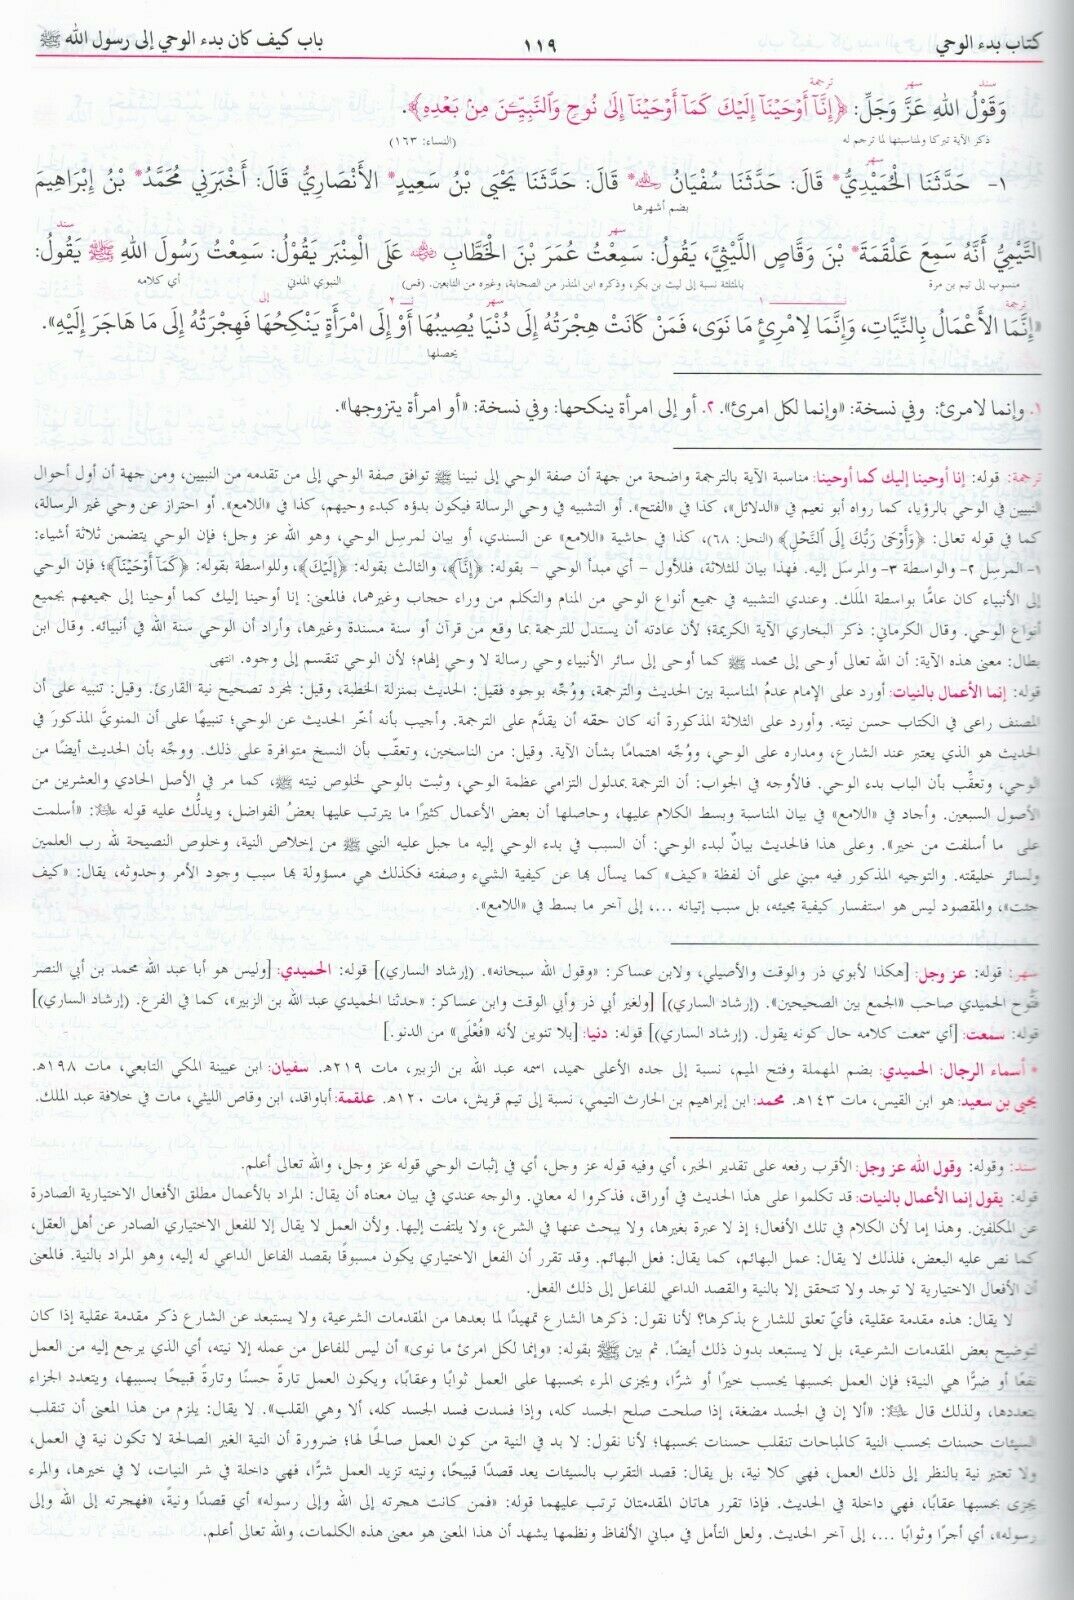 كتاب بدء الوحي ١١٩ باب كيف كان بدء الوحي إلى رسول الله ﷺ
سند سهر ترجمة
وَقَوْلُ اللهِ عَزَّ وَجَلَّ: ﴿إِنَّآ أَوْحَيْنَآ إِلَيْكَ كَمَآ أَوْحَيْنَآ إِلَىٰ نُوحٍ وَٱلنَّبِيِّـۧنَ مِنۢ بَعْدِهِ﴾.
ذكر الآية تبركا ولمناسبتها لما ترجم له (النساء: ١٦٣)
سهر
١- حَدَّثَنَا الْحُمَيْدِيُّ* قَالَ: حَدَّثَنَا سُفْيَانُ ﷫* قَالَ: حَدَّثَنَا يَحْيَى بْنُ سَعِيدٍ* الأَنْصَارِيُّ قَالَ: أَخْبَرَنِي مُحَمَّدُ* بْنُ إِبْرَاهِيمَ
بضم أشهرها
سهر سند
التَّيْمِيُّ أَنَّهُ سَمِعَ عَلْقَمَةَ* بْنَ وَقَّاصٍ اللَّيْثِيَّ، يَقُولُ: سَمِعْتُ عُمَرَ بْنَ الْخَطَّابِ ﵁ عَلَى الْمِنْبَرِ يَقُولُ: سَمِعْتُ رَسُولَ اللهِ ﷺ يَقُولُ:
منسوب إلى تيم بن مرة بالمثلثة نسبة إلى ليث بن بكر، وذكره ابن المنذر من الصحابة، وغيره من التابعين. (قس) النبوي المدني أي كلامه
ترجمة ١ سهر ٢ إلى
«إِنَّمَا الأَعْمَالُ بِالنِّيَّاتِ، وَإِنَّمَا لِامْرِئٍ مَا نَوَى، فَمَنْ كَانَتْ هِجْرَتُهُ إِلَى دُنْيَا يُصِيبُهَا أَوْ إِلَى امْرَأَةٍ يَنْكِحُهَا فَهِجْرَتُهُ إِلَى مَا هَاجَرَ إِلَيْهِ».
يحصلها
١. وإنما لامرئ: وفي نسخة: «وإنما لكل امرئ». ٢. أو إلى امرأة ينكحها: وفي نسخة: «أو امرأة يتزوجها».
ترجمة: قوله: إنا أوحينا إليك كما أوحينا: مناسبة الآية بالترجمة واضحة من جهة أن صفة الوحي إلى نبينا ﷺ توافق صفة الوحي إلى من تقدمه من النبيين، ومن جهة أن أول أحوال
النبيين في الوحي بالرؤيا، كما رواه أبو نعيم في «الدلائل»، كذا في «الفتح». أو التشبيه في وحي الرسالة فيكون بدؤه كبدء وحيهم، كذا في «اللامع». أو احتراز عن وحي غير الرسالة،
كما في قوله تعالى: ﴿وَأَوْحَىٰ رَبُّكَ إِلَى ٱلنَّحْلِ﴾ (النحل: ٦٨)، كذا في حاشية «اللامع» عن السندي، أو بيان لمرسِل الوحي، وهو الله عز وجل؛ فإن الوحي يتضمن ثلاثة أشياء:
١- المرسِل ٢- والواسطة ٣- والمرسَل إليه. فهذا بيان للثلاثة، فللأول - أي مبدأ الوحي - بقوله: ﴿إِنَّآ﴾، والثالث بقوله: ﴿إِلَيْكَ﴾، وللواسطة بقوله: ﴿كَمَآ أَوْحَيْنَآ﴾؛ فإن الوحي
إلى الأنبياء كان عامًّا بواسطة الملَك. وعندي التشبيه في جميع أنواع الوحي من المنام والتكلم من وراء حجاب وغيرهما، فالمعنى: إنا أوحينا إليك كما أوحينا إلى جميعهم بجميع
أنواع الوحي. وقال الكرماني: ذكر البخاري الآية الكريمة؛ لأن عادته أن يستدل للترجمة بما وقع من قرآن أو سنة مسندة وغيرها، وأراد أن الوحي سنة الله في أنبيائه. وقال ابن
بطال: معنى هذه الآية: أن الله تعالى أوحى إلى محمد ﷺ كما أوحى إلى سائر الأنبياء وحي رسالة لا وحي إلهام؛ لأن الوحي تنقسم إلى وجوه. انتهى
قوله: إنما الأعمال بالنيات: أورد على الإمام عدمُ المناسبة بين الحديث والترجمة، ووُجّه بوجوه فقيل: الحديث بمنزلة الخطبة، وقيل: لمجرد تصحيح نية القارئ. وقيل: تنبيه على أن
المصنف راعى في الكتاب حسن نيته. وأورد على الثلاثة المذكورة أنه كان حقه أن يقدَّم على الترجمة. وأجيب بأنه أخّر الحديث عن الوحي؛ تنبيهًا على أن المنويَّ المذكورَ في
الحديث هو الذي يعتبر عند الشارع، ومداره على الوحي، ووُجّه اهتمامًا بشأن الآية. وقيل: من الناسخين، وتعقّب بأن النسخ متوافرة على ذلك. ووجّه بأن الحديث أيضًا من
الوحي، وتعقِّب بأن الباب بدء الوحي. فالأوجه في الجواب: أن الترجمة بمدلول التزامي عظمة الوحي، وثبت بالوحي لخلوص نيته ﷺ، كما مر في الأصل الحادي والعشرين من
الأصول السبعين. وأجاد في «اللامع» في بيان المناسبة وبسط الكلام عليها، وحاصلها أن بعض الأعمال كثيرًا ما يترتب عليها بعضُ الفواضل، ويدلُّك عليه قوله ﵇: «أسلمت
على ما أسلفت من خير». وعلى هذا فالحديث بيانٌ لبدء الوحي: أن السبب في بدء الوحي إليه ما جبل عليه النبي ﷺ من إخلاص النية، وخلوص النصيحة لله رب العلمين
ولسائر خليقته. والتوجيه المذكور فيه مبني على أن لفظة «كيف» كما يسأل بها عن كيفية الشيء وصفته فكذلك هي مسؤولة بها سبب وجود الأمر وحدوثه، يقال: «كيف
جئت»، والمقصود ليس هو استفسار كيفية مجيئه، بل سبب إتيانه ...، إلى آخر ما بسط في «اللامع».
سهر: قوله: عز وجل: [هكذا لأبوي ذر والوقت والأصيلي، ولابن عساكر: «وقول الله سبحانه». (إرشاد الساري)] قوله: الحميدي: [وليس هو أبا عبد الله محمد بن أبي النصر
فتّوح الحميدي صاحب «الجمع بين الصحيحين». (إرشاد الساري)] [ولغير أبي ذر وأبي الوقت وابن عساكر: «حدثنا الحميدي عبد الله بن الزبير»، كما في الفرع. (إرشاد الساري)]
قوله: سمعت: [أي سمعت كلامه حال كونه يقول. (إرشاد الساري)] قوله: دنيا: [بلا تنوين لأنه «فُعْلَى» من الدنو.]
* أسماء الرجال: الحميدي: بضم المهملة وفتح الميم، نسبة إلى جده الأعلى حميد، اسمه عبد الله بن الزبير، مات ٢١٩هـ. سفيان: ابن عيينة المكي التابعي، مات ١٩٨هـ.
يحيى بن سعيد: هو ابن القيس، مات ١٤٣هـ. محمد: ابن إبراهيم بن الحارث التيمي، نسبة إلى تيم قريش، مات ١٢٠هـ. علقمة: أباواقد، ابن وقاص الليثي، مات في خلافة عبد الملك.
سند: وقوله: وقول الله عز وجل: الأقرب رفعه على تقدير الخبر، أي وفيه قوله عز وجل، أي في إثبات الوحي قوله عز وجل، والله تعالى أعلم.
قوله: يقول إنما الأعمال بالنيات: قد تكلموا على هذا الحديث في أوراق، فذكروا له معاني. والوجه عندي في بيان معناه أن يقال: المراد بالأعمال مطلق الأفعال الاختيارية الصادرة
عن المكلفين. وهذا إما لأن الكلام في تلك الأفعال؛ إذ لا عبرة بغيرها، ولا يبحث عنها في الشرع، ولا يلتفت إليها. ولأن العمل لا يقال إلا للفعل الاختياري الصادر عن أهل العقل،
كما نص عليه البعض، فلذلك لا يقال: عمل البهائم، كما يقال: فعل البهائم. وقد تقرر أن الفعل الاختياري يكون مسبوقًا بقصد الفاعل الداعي له إليه، وهو المراد بالنية. فالمعنى
أن الأفعال الاختيارية لا توجد ولا تتحقق إلا بالنية والقصد الداعي للفاعل إلى ذلك الفعل.
لا يقال: هذه مقدمة عقلية، فأيّ تعلق للشارع بذكرها؟ لأنا نقول: ذكرها الشارع تمهيدًا لما بعدها من المقدمات الشرعية، ولا يستبعد عن الشارع ذكر مقدمة عقلية إذا كان
لتوضيح بعض المقدمات الشرعية، بل لا يستبعد بدون ذلك أيضًا. ثم بين ﷺ بقوله: «وإنما لكل امرئ ما نوى» أن ليس للفاعل من عمله إلا نيته، أي الذي يرجع إليه من العمل
نفعًا أو ضرًّا هي النية؛ فإن العمل بحسبها يحسب خيرًا أو شرًّا، ويجزى المرء بحسبها على العمل ثوابًا وعقابًا، ويكون العمل تارةً حسنًا وتارةً قبيحًا بسببها، ويتعدد الجزاء
بتعددها، ولذلك قال ﵇: «ألا إن في الجسد مضغة، إذا صلحت صلح الجسد كله، وإذا فسدت فسد الجسد كله، ألا وهي القلب». لا يقال: يلزم من هذا المعنى أن تنقلب
السيئات حسنات بحسب النية كالمباحات تنقلب حسنات بحسبها؛ لأنا نقول: لا بد في النية من كون العمل صالحًا لها؛ ضرورة أن النية الغير الصالحة لا تكون نية في العمل،
ولا تعتبر نية بالنظر إلى ذلك العمل، فهي كلا نية، بل يقال: قصد التقرب بالسيئات يعد قصدًا قبيحًا، ونيته تزيد العمل شرًّا، فهي داخلة في شر النيات، لا في خيرها، والمرء
يجزى بحسبها عقابًا، فهي داخلة في الحديث. فإذا تقرر هاتان المقدمتان ترتب عليهما قوله: «فمن كانت هجرته إلى الله وإلى رسوله» أي قصدًا ونيةً، «فهجرته إلى الله وإلى
رسوله»، أي أجرًا وثوابًا ...، إلى آخر الحديث. ولعل التأمل في مباني الألفاظ ونظمها يشهد أن هذا المعنى هو معنى هذه الكلمات، والله تعالى أعلم.